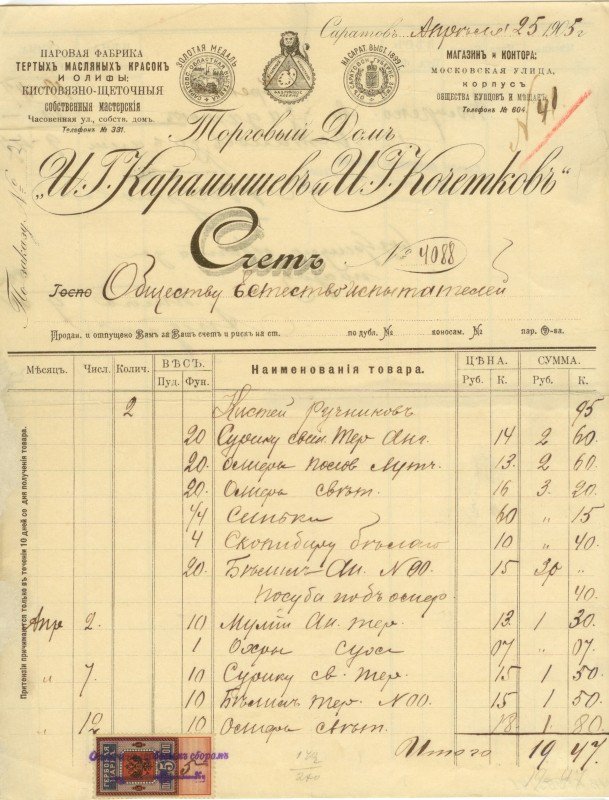 Саратовъ, Апрѣля 25 1905 г
ПАРОВАЯ ФАБРИКА
ТЕРТЫХЪ МАСЛЯНЫХЪ КРАСОКЪ
И ОЛИФЫ;
КИСТОВЯЗНО-ЩЕТОЧНЫЯ
собственныя мастерскія
Часовенная ул., собств. домъ.
Телефонъ № 331.
ЗОЛОТАЯ МЕДАЛЬ
НА САРАТ. ВЫСТ. 1899 Г.
МАГАЗИНЪ и КОНТОРА:
МОСКОВСКАЯ УЛИЦА,
КОРПУСЪ
ОБЩЕСТВА КУПЦОВЪ И МѢЩАНЪ.
Телефонъ № 604.
N 41
Торговый Домъ
„И.Г. Карамышевъ и И.Г. Кочетковъ“
Счетъ № 4088
По заказу №
Госпо Обществу Естествоиспытателей
Продан. и отпущено Вамъ за Вашъ счетъ и рискъ на ст. по дубл. № коносам. № пар. О-ва.
Мѣсяцъ. Числ. Колич. ВѢСЪ. Пуд. Фун. Наименованія товара. ЦѢНА. Руб. К. СУММА. Руб. К.
Претензіи принимаются только въ теченіи 10 дней со дня полученія товара.
2 Кистей ручниковъ 95
20 Сурику свин тер Анг. 14 2 60
20. 13. 2 60.
20. свѣт. 16 3. 20
Синьки 60 „ 15
4 Скипидару бѣлаго 10 „ 40.
20. Бѣлил Ан. N 00. 15 3 „
Посуда подъ 40.
Апр 2. 10 Муміи Ан. тер. 13. 1 30.
1 Охры сухой 07 „ 07
„ 7. 10 Сурику св. тер. 15 1 50.
10 Бѣлил тер. N 00. 15 1 50.
„ 12 10 свѣт. 18. 1 80
Итого 19 47.
ГЕРБОВАЯ МАРКА
5